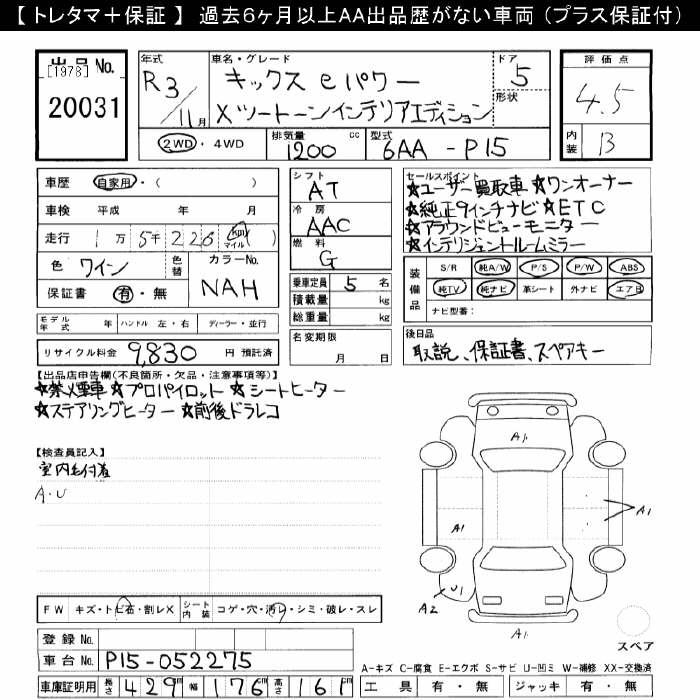 【 トレタマ＋保証 】 過去6ヶ月以上AA出品歴がない車両 (プラス保証付)
出品 No.
[1978]
20031
年式
R3/11月
車名・グレード
キックス eパワー
Xツートーンインテリアエディション
ドア
5
形状
評価点
4.5
内装
B
2WD ・ 4WD
排気量
1200 cc
型式
6AA - P15
車歴 自家用・( )
車検 平成 年 月
走行 1万5千226 km マイル ( )
色 ワイン 色替 カラーNo. NAH
保証書 有・無
モデル年式 年 ハンドル 左・右 ディーラー・並行
リサイクル料金 9,830 円 預託済
シフト
AT
冷房
AAC
燃料
G
乗車定員 5 名
積載量 kg
総重量 kg
名変期限
月 日
セールスポイント
☆ユーザー買取車 ☆ワンオーナー
☆純正9インチナビ ☆ETC
☆アラウンドビューモニター
☆インテリジェントルームミラー
装備品
S/R 純A/W P/S P/W ABS
純TV 純ナビ 革シート 外ナビ エアB
ナビ型番：
後日品
取説、保証書、スペアキー
【出品店申告欄(不良箇所・欠品・注意事項等)】
☆禁煙車 ☆プロパイロット ☆シートヒーター
☆ステアリングヒーター ☆前後ドラレコ
【検査員記入】
室内毛付着
A・U
A1
A1
A1
U1
A2
A1
スペア
FW キズ・トビ石・割レX シート内装 コゲ・穴・汚レ・シミ・破レ・スレ
登録 No.
車台 No. P15-052275
車庫証明用 長さ 429 cm 幅 176 cm 高さ 161 cm
A-キズ C-腐食 E-エクボ S-サビ U-凹ミ W-補修 XX-交換済
工具 有・無 ジャッキ 有・無